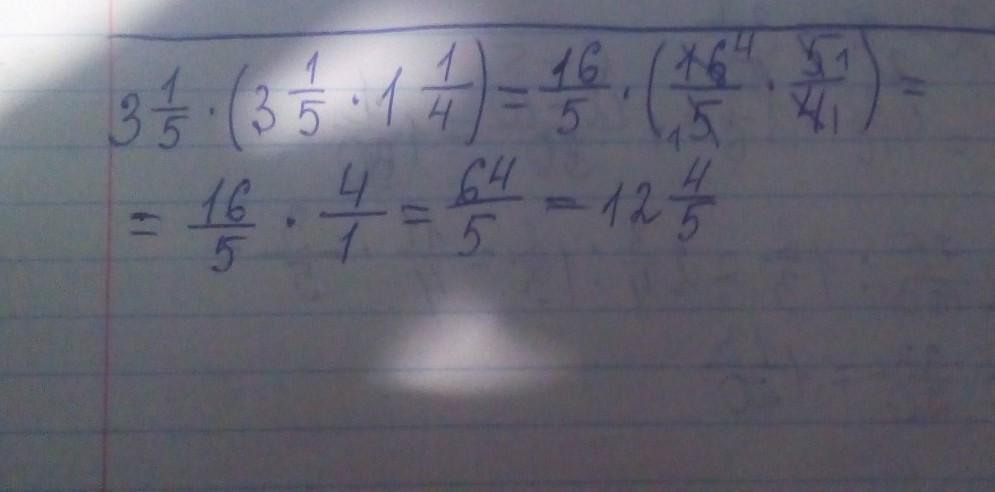 3 1/5 · (3 1/5 · 1 1/4) = 16/5 · (16⁴/₁5 · 5₁/4₁) =
= 16/5 · 4/1 = 64/5 = 12 4/5